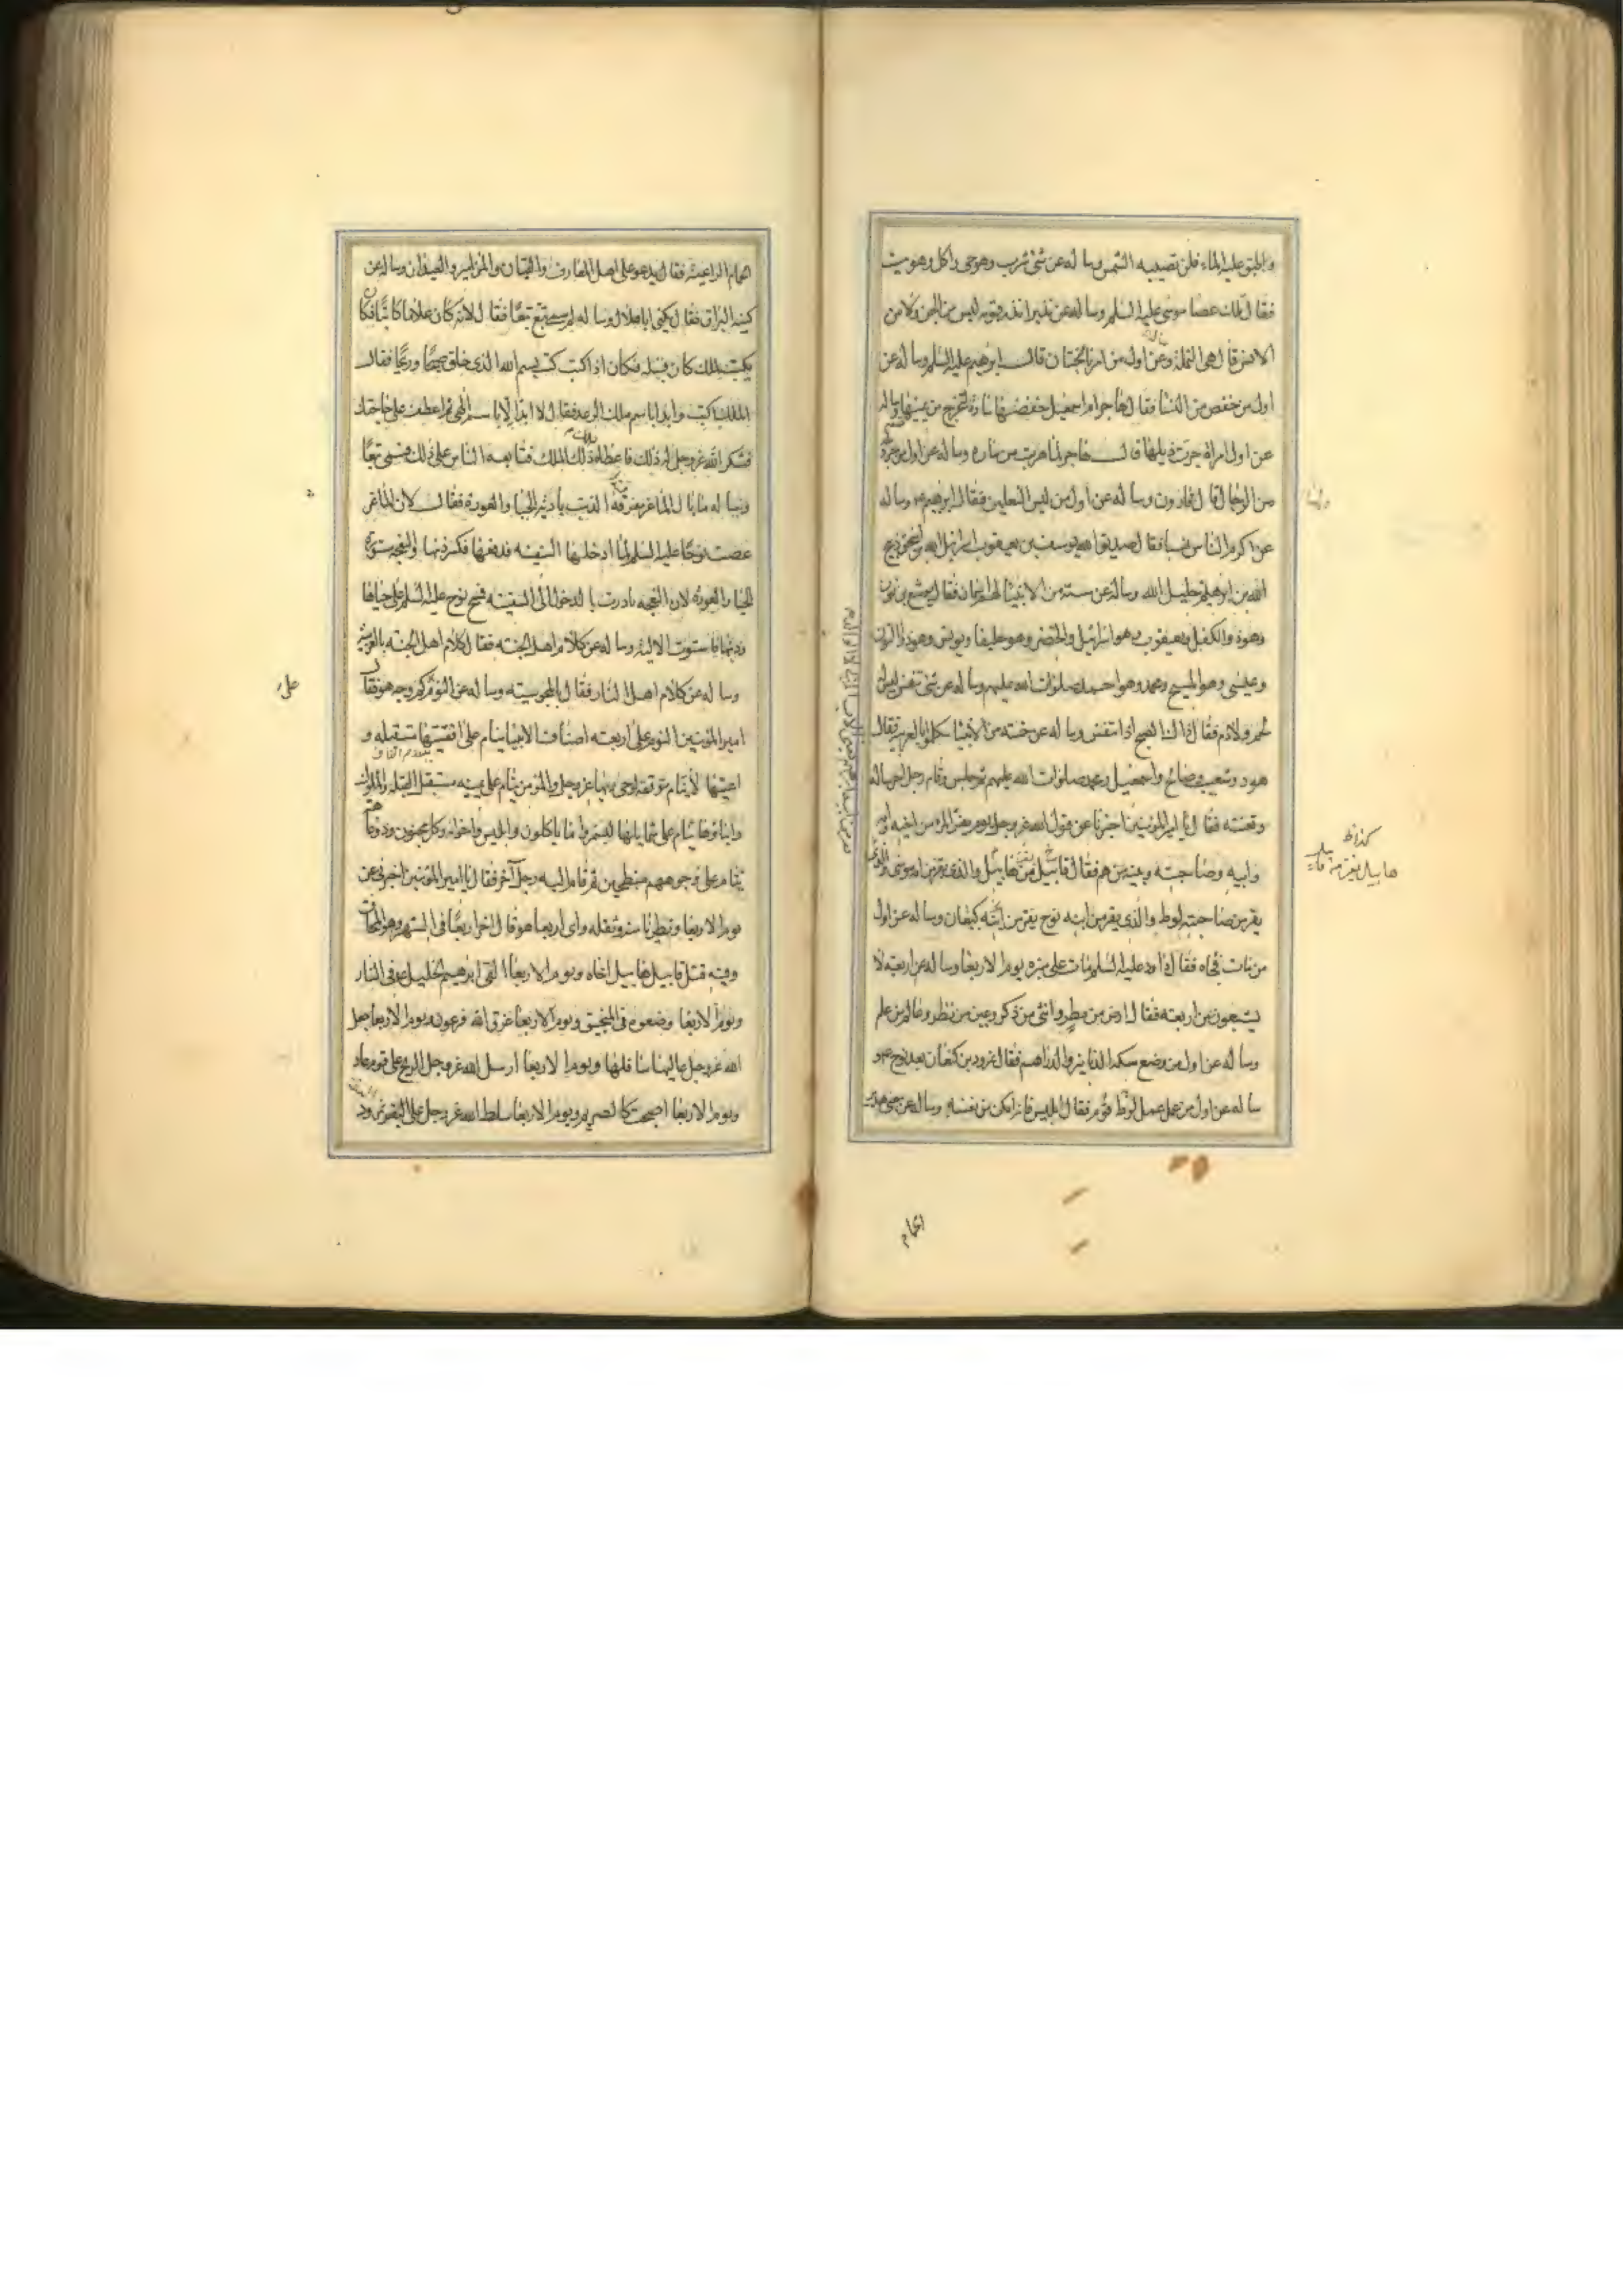 واطبق عليه الماء فلن تصيبه الشمس وساله عن شئ شرب وهو حى واكل وهو ميت
فقال تلك عصا موسى عليه السلم وساله عن نذير انذر قومه ليس من الجن ولا من
الانس قال هى النملة وعن اول من امر بالختان قال ابرهيم عليه السلم وساله عن
اول من خفض من النسا فقال هاجر ام اسمعيل خفضتها ساره لتخرج من يمينها وساله
عن اول امراة جرت ذيلها قال هاجر لما هربت من ساره وساله عن اول من جر ذيله
من الرجال قال قارون وساله عن اول من لبس النعلين فقال ابرهيم وساله
عن اكرم الناس نسبا فقال صديق الله يوسف بن يعقوب اسرائيل الله بن اسحق ذبيح
الله بن ابرهيم خليل الله وساله عن سته من الانبيا لهم اسمان فقال يوشع بن نون
وهو ذو الكفل ويعقوب وهو اسرائيل والخضر وهو حليفا ويونس وهو ذو النون
وعيسى وهو المسيح ومحمد وهو احمد صلوات الله عليهم وساله عن شئ تنفس ليس له
لحم ولا دم فقال ذاك الصبح اذا تنفس وساله عن خمسه من الانبيا تكلموا بالعربيه فقال
هود وشعيب وصالح واسمعيل ومحمد صلوات الله عليهم ثم جلس وقام رجل اخر ساله
وتعنته فقال يا امير المؤمنين اخبرنا عن قول الله عز وجل يوم يفر المرء من اخيه وامه
وابيه وصاحبته وبنيه من هم فقال قابيل يفر من هابيل والذى يفر من امه موسى والذى
يفر من صاحبته لوط والذى يفر من ابنه نوح يفر من ابنه كنعان وساله عن اول
من مات فجاه فقال داود عليه السلم مات على منبره يوم الاربعا وساله عن اربعة لا
يشبعون من اربعه فقال ارض من مطر وانثى من ذكر وعين من نظر وعالم من علم
وساله عن اول من وضع سكه الدنانير والدراهم فقال نمرود بن كنعان بعد نوح
وساله عن اول من عمل عمل قوم لوط فقال ابليس فانه امكن من نفسه وساله عن معنى هدير
كذا فى ط
هابيل يفر من قابيل
الحمام
الحمام الراعبيه فقال يدعو على اهل المعازف والقيان والمزامير والعيدان وساله عن
كنيه البراق فقال يكنى ابا هلال وساله لم سمى تبع تبعا فقال لانه كان غلاما كاتبا فكان
يكتب لملك كان قبله فكان اذا كتب كتب بسم الله الذى خلق صبحا وريحا فقال
الملك اكتب وابدا باسم ملك الرعد فقال لا ابدا الا باسم الهى ثم اعطف على حاجتك
فشكر الله عز وجل له ذلك فاعطاه ملك ذلك الملك فتابعه الناس على ذلك فسمى تبعا
وساله ما بال الماعز مفرقعه الذنب باديه الحيا والعورة فقال لان الماعز
عصت نوحا عليه السلم لما ادخلها السفينه فدفعها فكسر ذنبها والنعجه مستورة
الحيا والعوره لان النعجه بادرت بالدخول الى السفينه فمسح نوح عليه السلم على حياها
وذنبها فاستوت الاليه وساله عن كلام اهل الجنه فقال كلام اهل الجنه بالعربيه
وساله عن كلام اهل النار فقال بالمجوسيه وساله عن النوم على كم وجه هو فقال
امير المؤمنين النوم على اربعه اصناف الانبيا تنام على اقفيتها مستقبله و
اعينها لا تنام متوقعه لوحى ربها عز وجل والمؤمن ينام على يمينه مستقبل القبله والملوك
وابناؤها تنام على شمايلها ليستمروا ما ياكلون وابليس واخوانه وكل مجنون وذو عاهه
ينام على وجوههم منبطحين ثم قام اليه رجل آخر فقال يا امير المؤمنين اخبرنى عن
يوم الاربعا وتطيرنا منه وثقله واى اربعا هو قال اخر اربعا فى الشهر وهو المحاق
وفيه قتل قابيل هابيل اخاه ويوم الاربعا القى ابرهيم الخليل فى النار
ويوم الاربعا وضعوه فى المنجنيق ويوم الاربعا غرق الله فرعون ويوم الاربعا جعل
الله عز وجل عاليها سافلها ويوم الاربعا ارسل الله عز وجل الريح على قوم عاد
ويوم الاربعا اصبحت كالصريم ويوم الاربعا سلط الله عز وجل على نمرود البقه
على